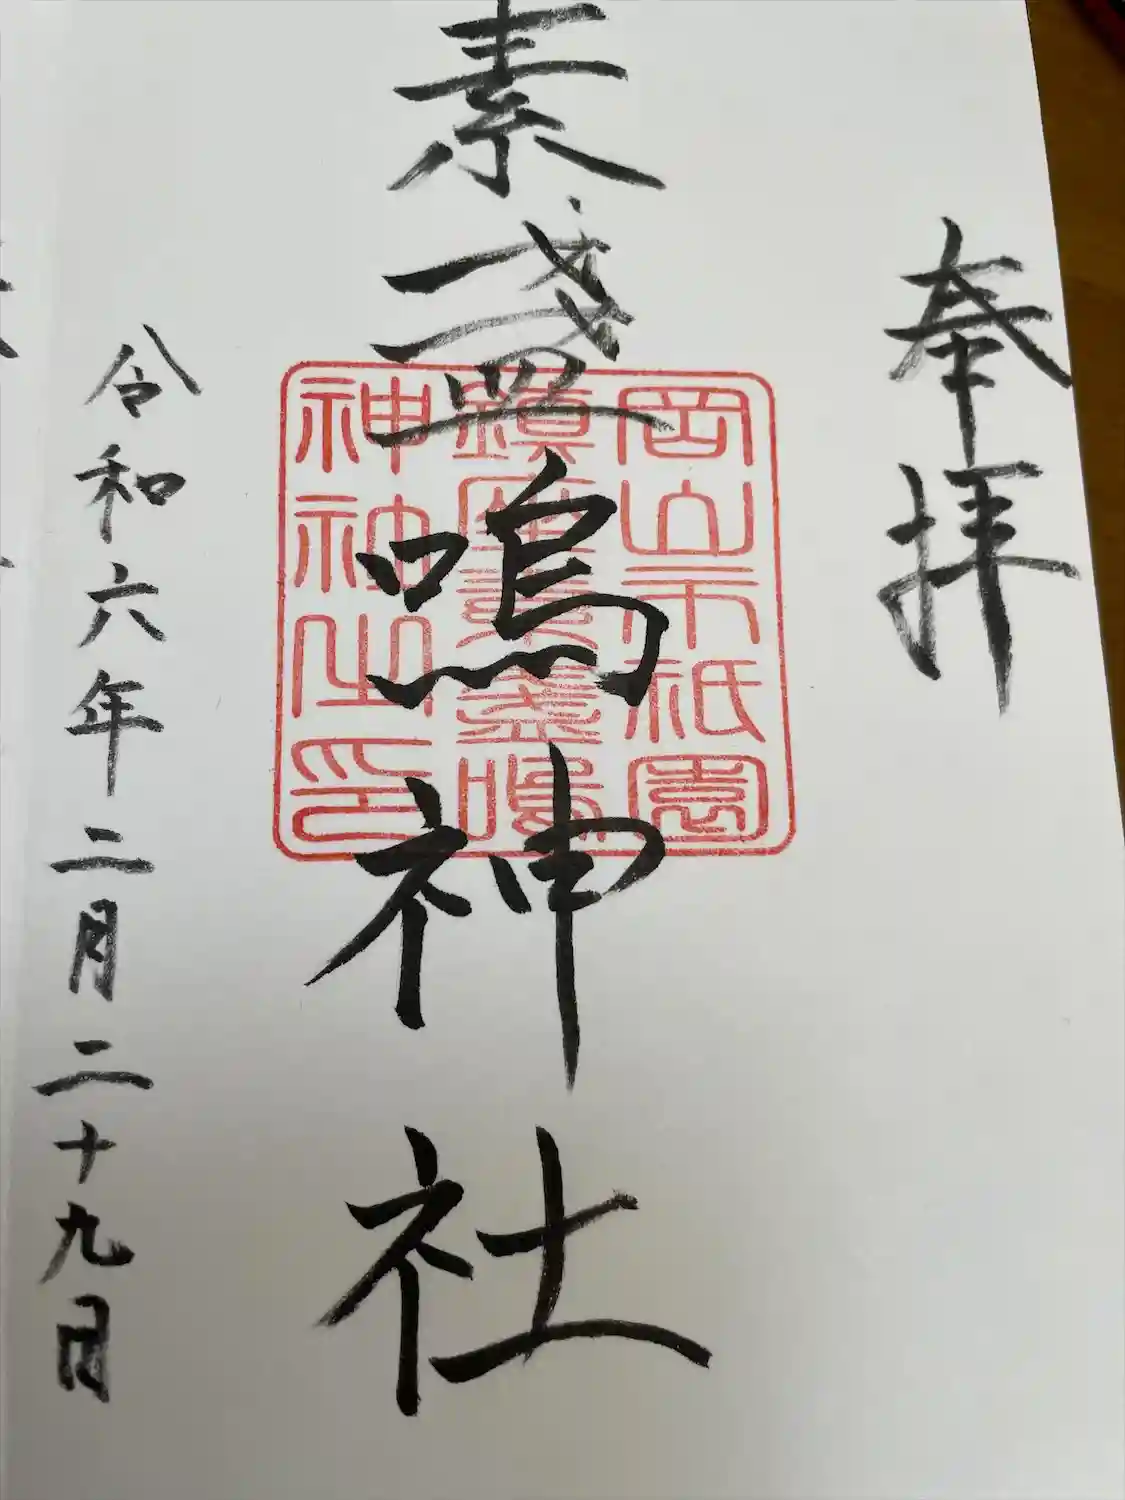 奉拝
素盞嗚神社
岡山市祇園
鎮座素盞嗚
神社之印
令和六年二月二十九日